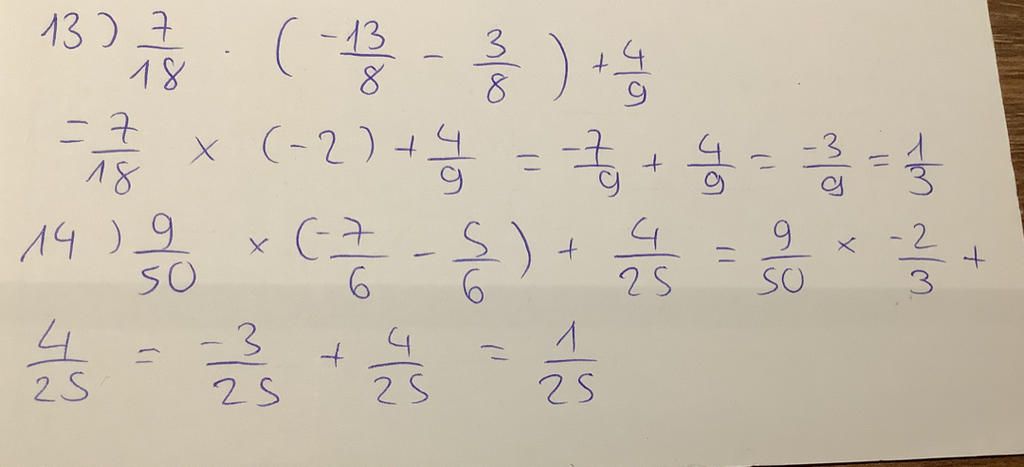 13) 7/18 · (-13/8 - 3/8) + 4/9
= 7/18 × (-2) + 4/9 = -7/9 + 4/9 = -3/9 = 1/3
14) 9/50 × (-7/6 - 5/6) + 4/25 = 9/50 × -2/3 +
4/25 = -3/25 + 4/25 = 1/25